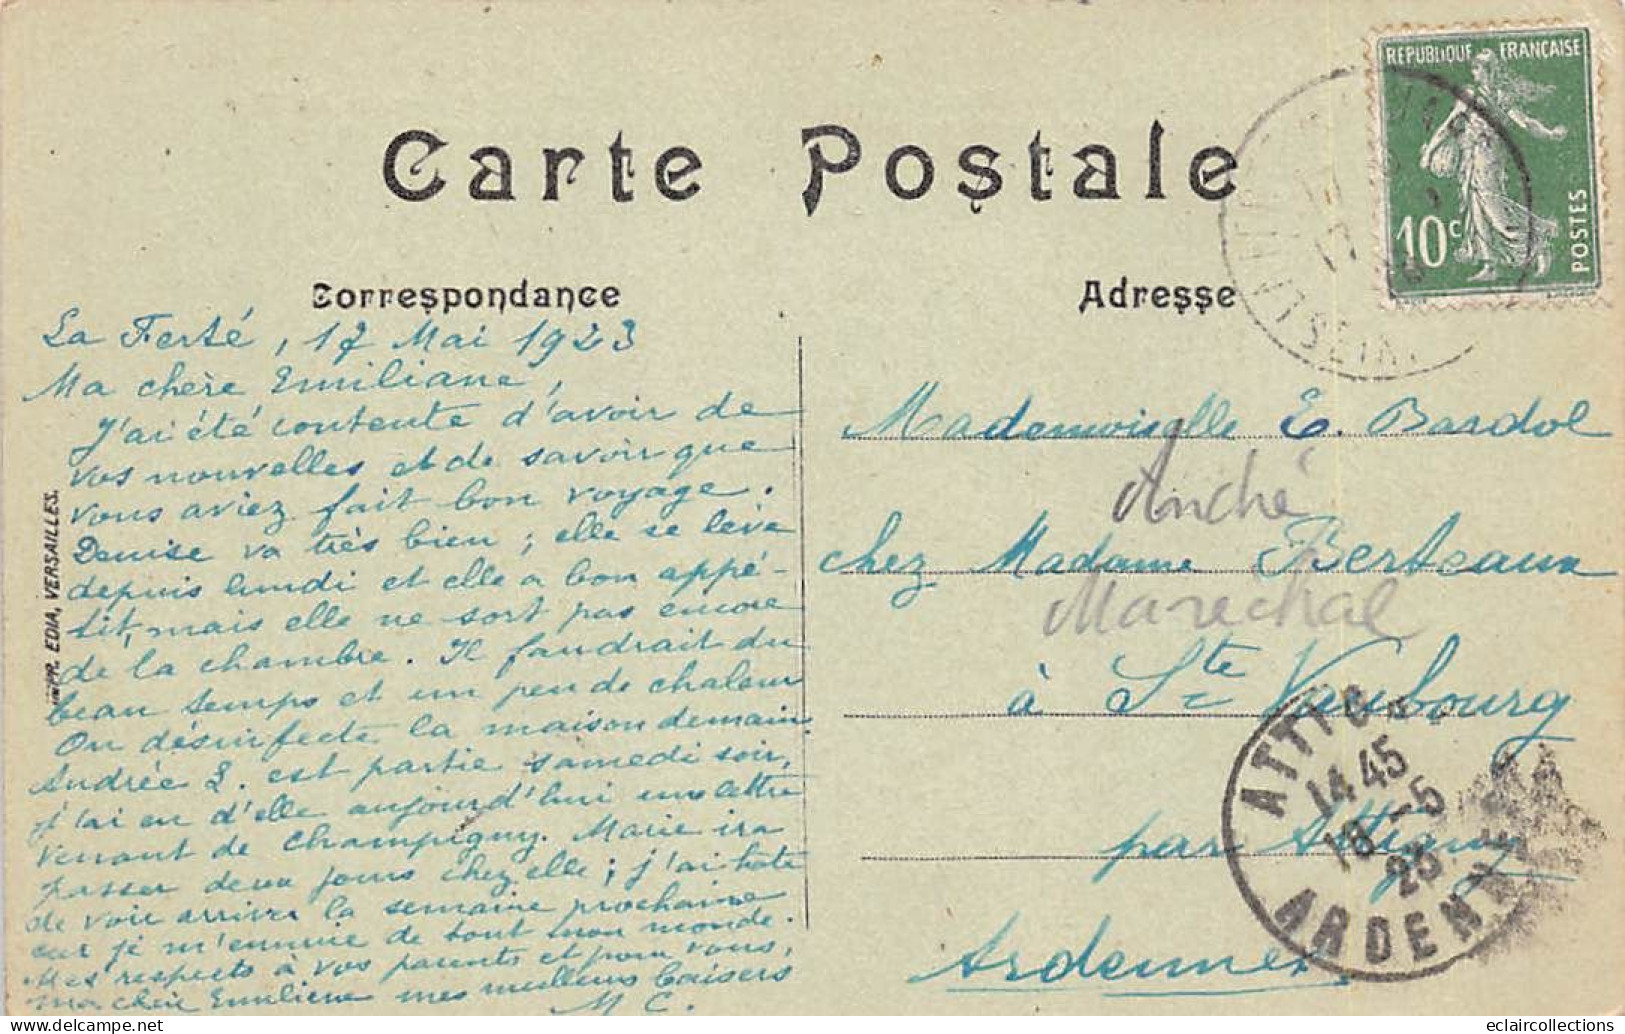 Carte Postale
REPUBLIQUE FRANCAISE
10c
POSTES
Correspondance
Adresse
La Ferté, 17 Mai 1923
Ma chère Emiliane,
J'ai été contente d'avoir de
vos nouvelles et de savoir que
vous aviez fait bon voyage.
Denise va très bien ; elle se lève
depuis lundi et elle a bon appé-
tit, mais elle ne sort pas encore
de la chambre. Il faudrait du
beau temps et un peu de chaleur
On désinfecte la maison demain
Andrée L. est partie samedi soir,
j'ai eu d'elle aujourd'hui une lettre
venant de Champigny. Marie ira
passer deux jours chez elle ; j'ai hâte
de voir arriver la semaine prochaine
car je m'ennuie de tout mon monde.
Mes respects à vos parents et pour vous,
ma chère Emiliene mes meilleurs baisers
M C.
IMPR. EDIA, VERSAILLES.
Mademoiselle E. Bardol
Anché
chez Madame Berteaux
Marechal
à Ste Vaubourg
par Attigny
Ardennes
ATTIG
14 45
18 -5
23
ARDENN
eclaircollections